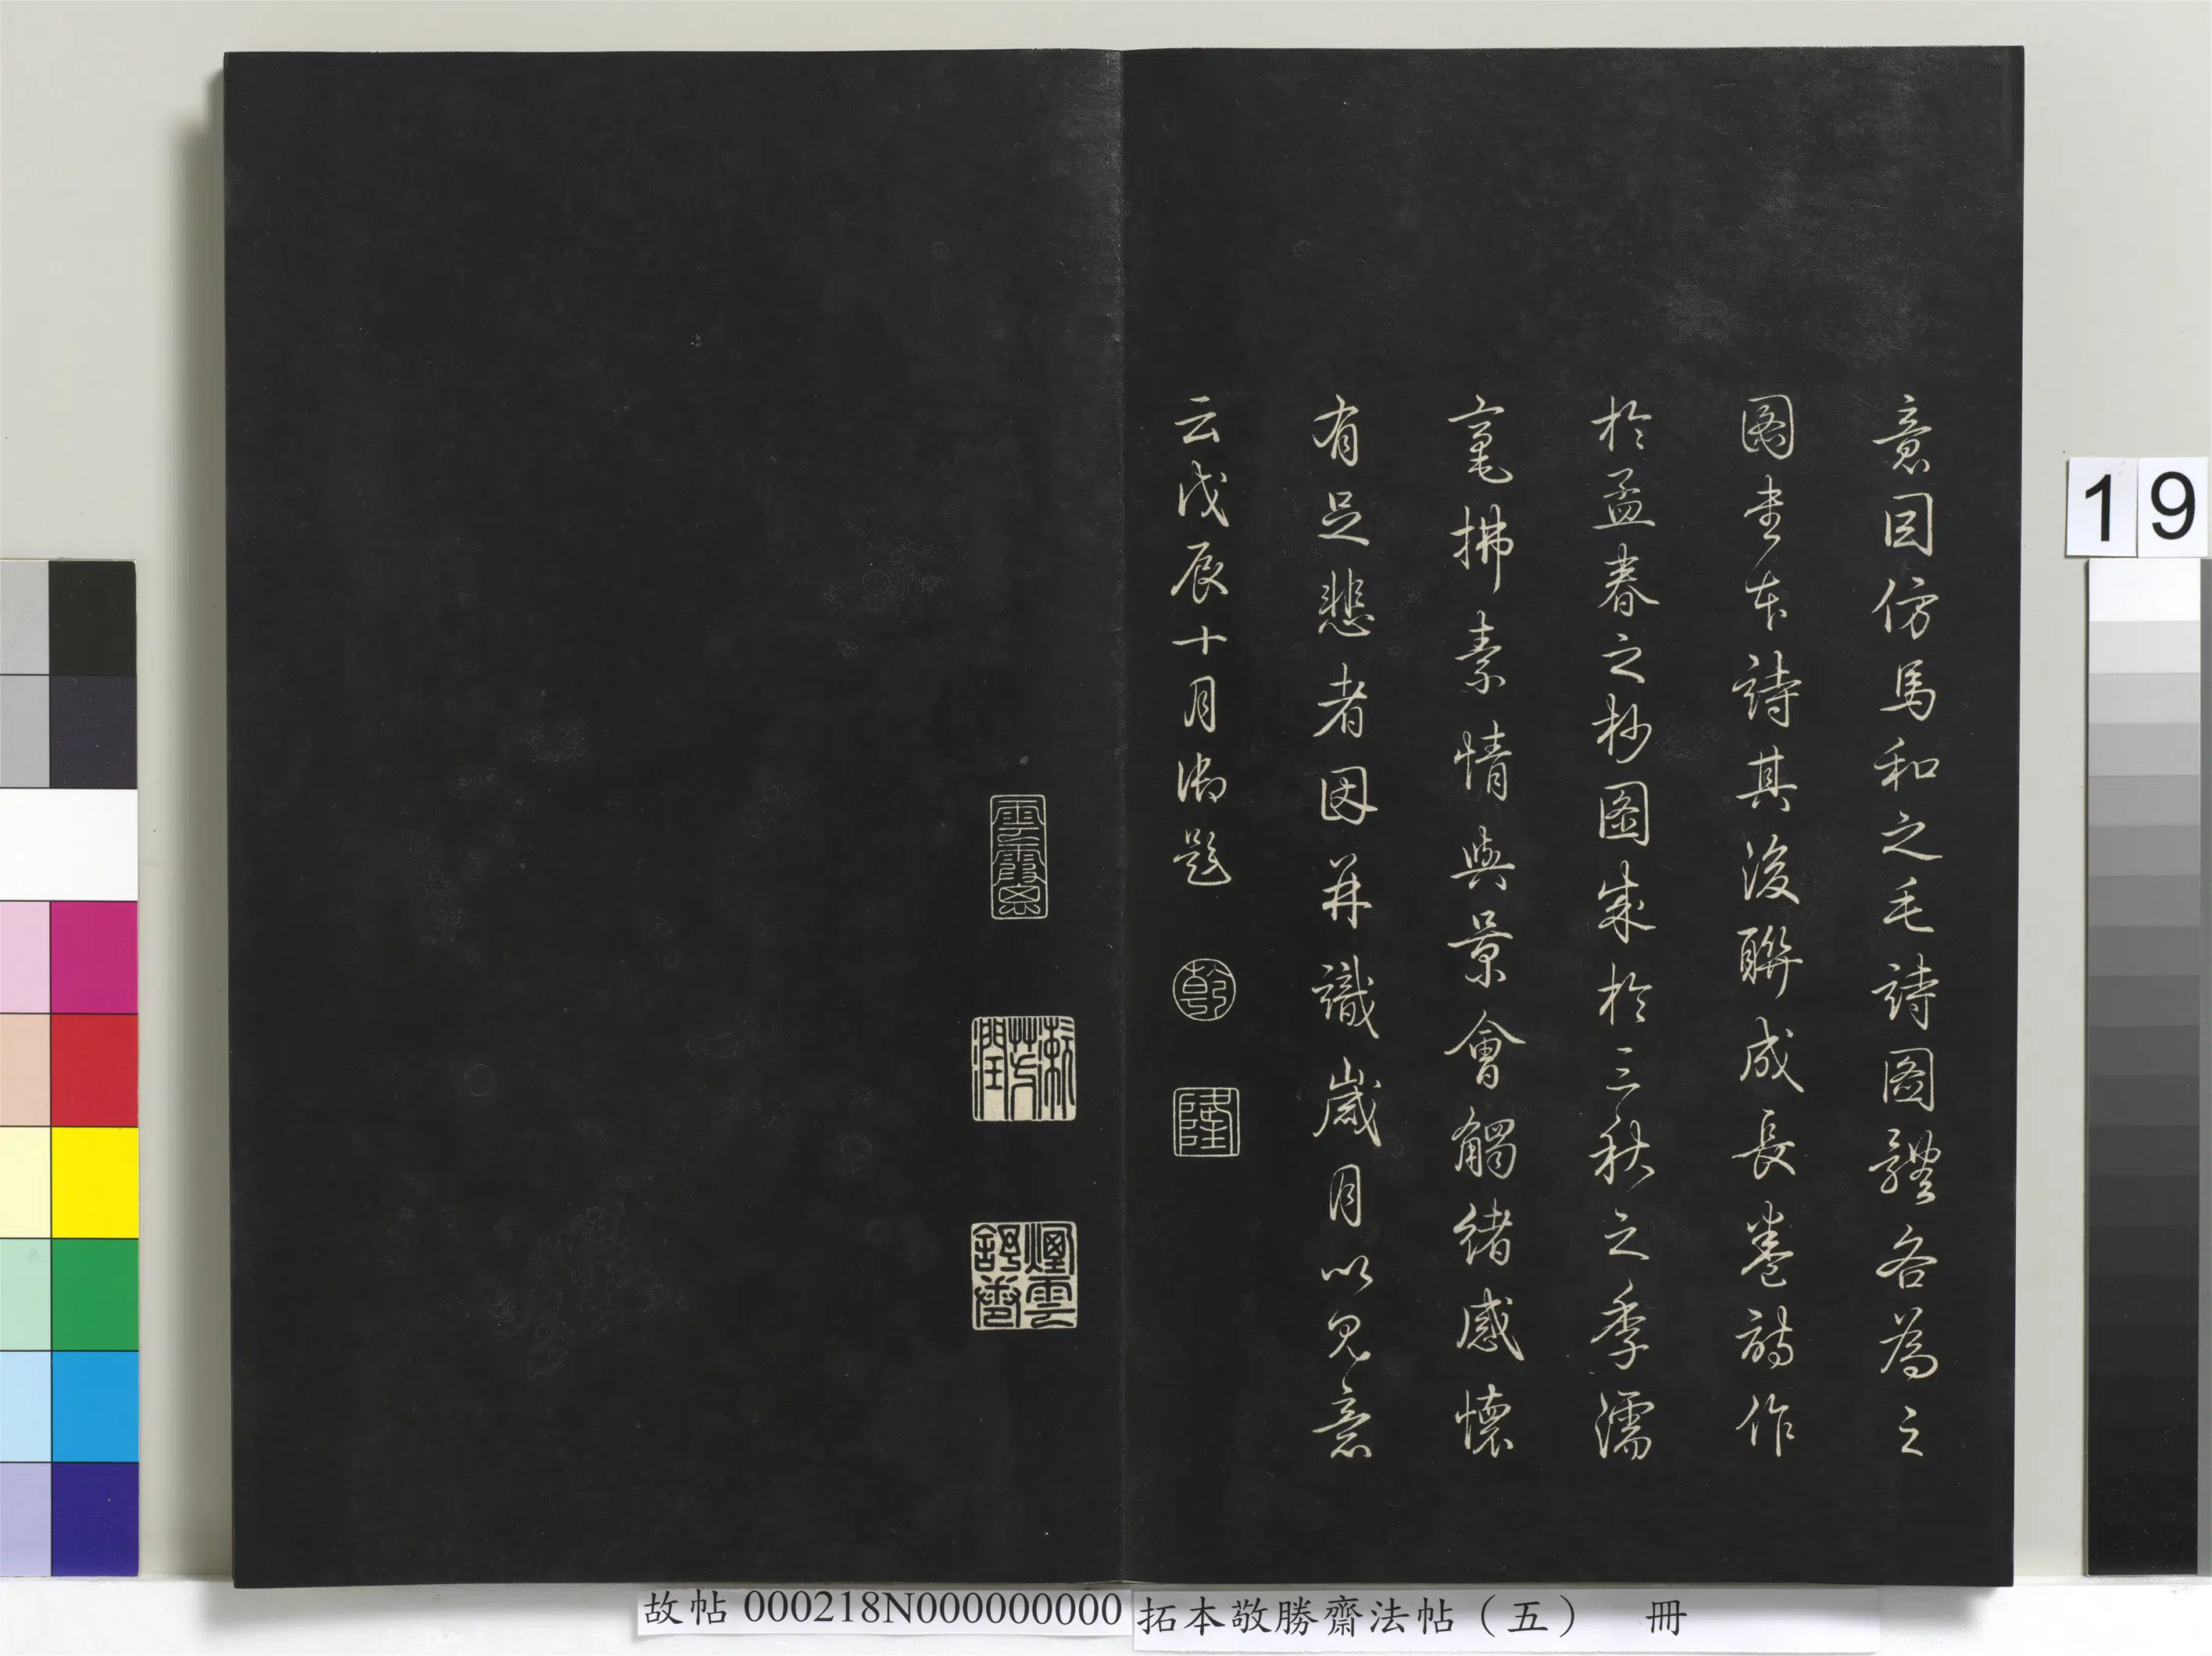 意因仿馬和之毛詩圖體各為之
圖書本詩其後聯成長卷詩作
於孟春之杪圖成於三秋之季濡
毫拂素情與景會觸緒感懷
有足悲者因并識歲月以見意
云戊辰十月御題
乾
隆
漱芳潤
烟雲舒卷
19
故帖000218N000000000
拓本敬勝齋法帖（五） 冊